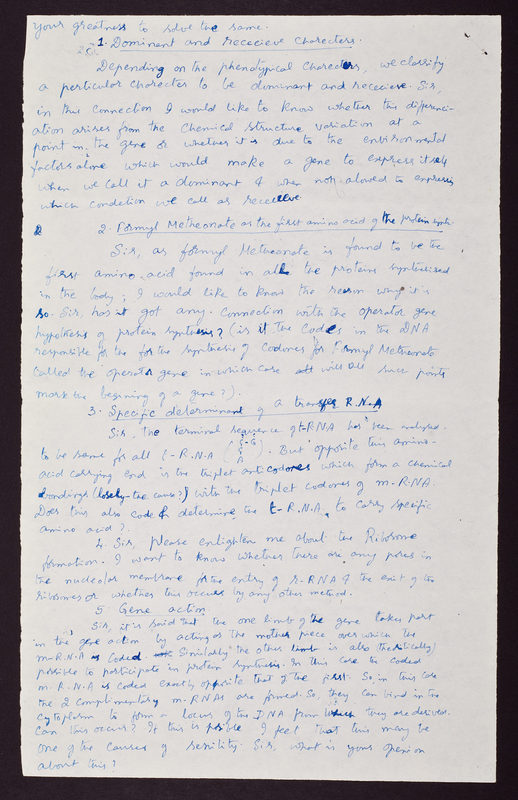 your greatness to solve the same.
1. Dominent and rececieve charecters.
Depending on the phenotypical charecters, we classify
a perticular charecter to be dominant and rececieve. Sir,
in this connection I would like to know whether this differenci-
ation arises from the chemical structure variation at a
point in the gene or whether it is due to the environmental
factors alone which would make a gene to express itself
when we call it a dominant & when not allowed to express
which condetion we call as rececieve.
2. Formyl Metheonate as the first amino acid of the protein synth.
Sir, as formyl Metheonate is found to be the
first amino acid found in all the proteins synthesised
in the body; I would like to know the reason why it is
so. Sir, has it got any connection with the operator gene
hypothesis of protein synthesis? (is it the codes in the DNA
responsible for the for the synthesis of codones for Formyl Metheonate
called the operator gene in which case all will all such points
mark the begening of a gene?).
3. Specific determinant of a transfer R.N.A
Sir, the terminal sequence of t-RNA has been analysed
to be same for all t-R.N.A. But opposite this amino-
acid carrying end is the triplet anticodones which form a chemical
bondings (losely- the cause?) with the triplet codones of m-R.N.A.
Does this also code & determine the t-R.N.A. to carry specific
amino acid?.
4. Sir, please enlighten me about the Ribosome
formation. I want to know whether there are any pores in
the nucleolar membrane for the entry of r-RNA & the exit of the
ribosomes or whether this occurs by any other method.
5 Gene action
Sir, it is said that the one limb of the gene takes part
in the gene action by acting as the mother piece over which the
m-R.N.A is coded. Similarly the other limb is also theoritically
possible to participate in protein synthesis. In this case the coded
m.R.N.A is coded exactly opposite that of the first. So, in this case
the 2 complimentary m-RNAs are formed. So, they can bind in the
cytoplasm to form a locus of the DNA from which they are derived.
Can this occur? If this is posible I feel that this may be
one of the causes of senility. Sir, what is your openion
about this?